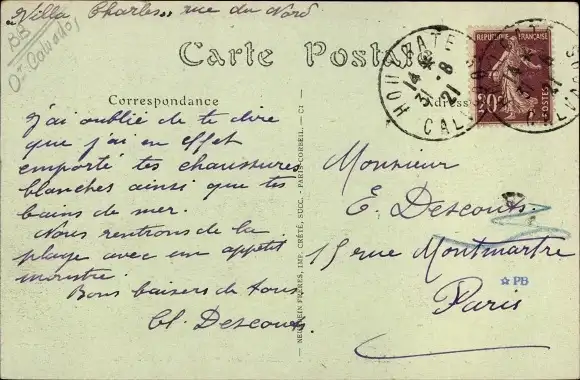 "Villa Charles" rue du Nord
88
Dt Calvados
Carte Postale
Correspondance
Adresse
HOULGATE
14 *
31 - 8
21
CALVADOS
REPUBLIQUE FRANÇAISE
20c
POSTES
J'ai oublié de te dire
que j'ai en effet
emporté tes chaussures
blanches ainsi que tes
bains de mer.
Nous rentrons de la
plage avec un appétit
monstre.
Bons baisers de tous
Cl. Descours.
NEURDEIN FRÈRES, IMP. CRÉTÉ, SUCC. - PARIS-CORBEIL. - C1 -
Monsieur
E. Descours.
15 rue Montmartre
Paris
☆PB